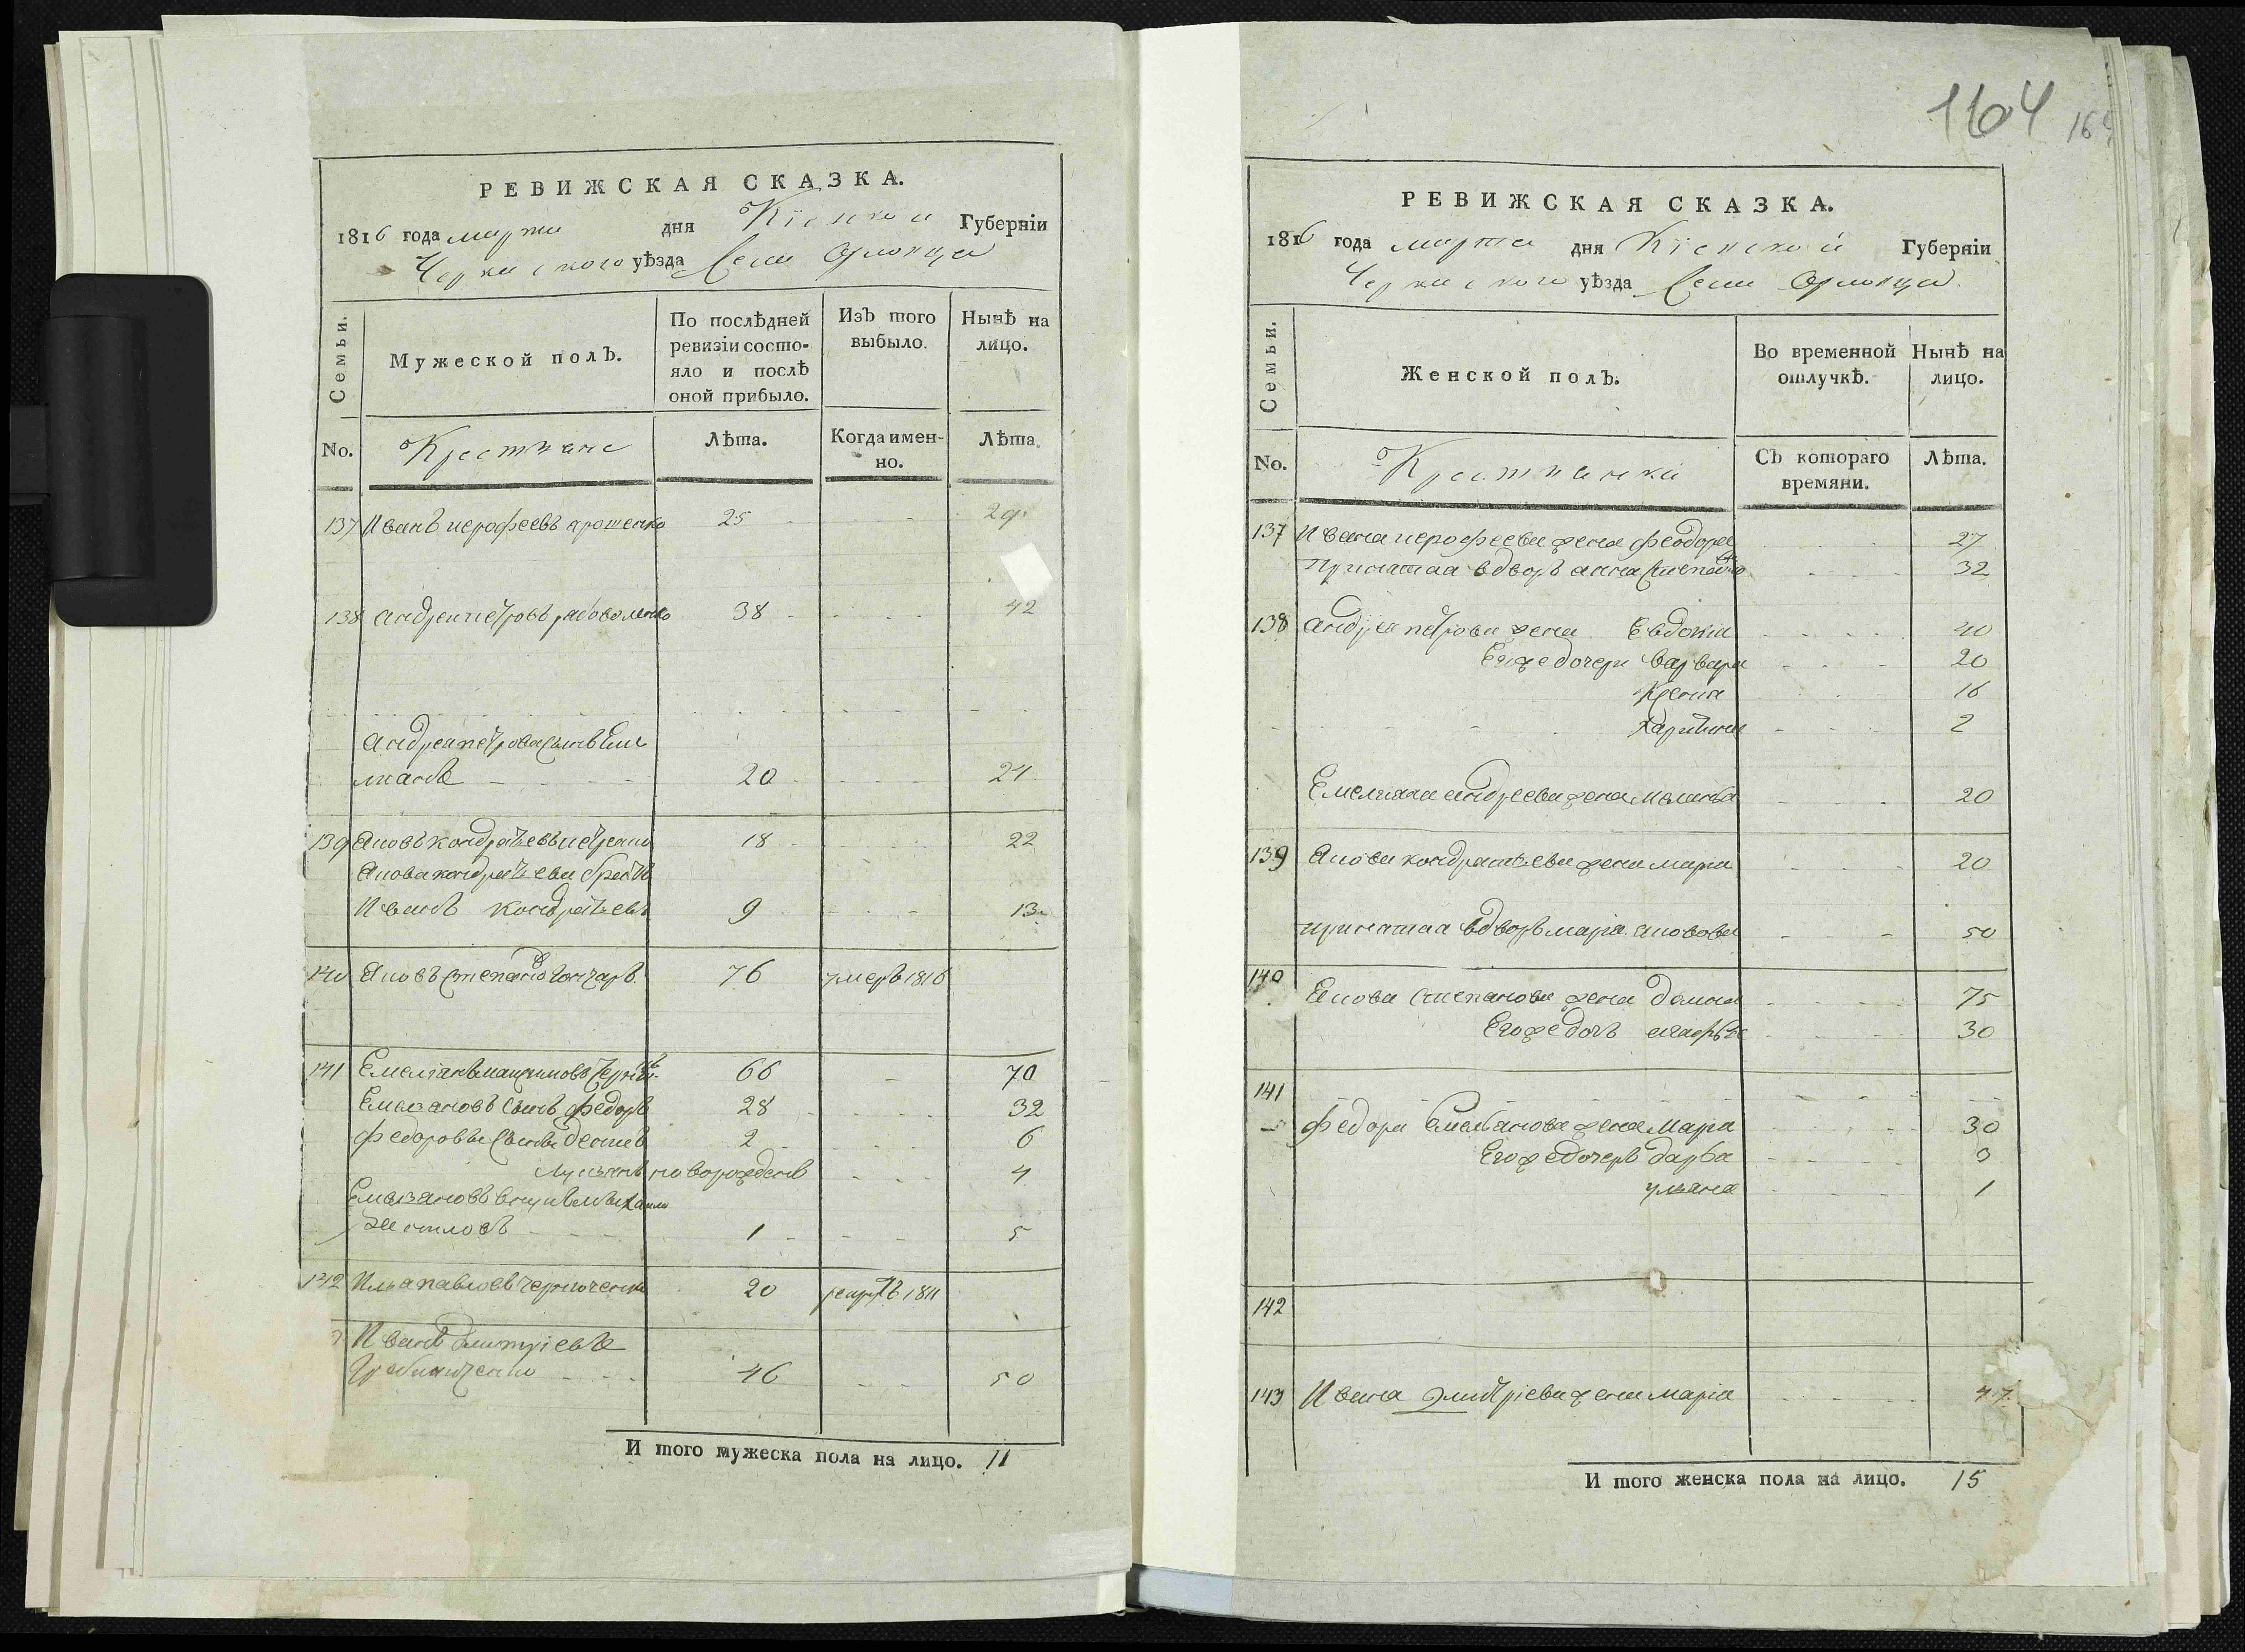 РЕВИЖСКАЯ СКАЗКА.
1816 года марта дня Кіевской Губерніи
Черкаского уѣзда Села Орловца
Семьи.
Мужеской полъ.
По послѣдней ревизіи состояло и послѣ оной прибыло.
Изъ того выбыло.
Нынѣ на лицо.
No.
Крестьяне
Лѣта.
Когда именно.
Лѣта.
137 Иванъ иерофеевъ ярошенко 25 29
138 андреи петровъ 38 42
андрея петрова сынъ Емелианъ 20 24
139 Яковъ кондратьевъ 18 22
Якова кондратьева братъ
Иванъ кондратьевъ 9 13
140 Яковъ степановъ гончаръ 76 умеръ 1816
141 Емелианъ максимовъ 66 70
Емельяновъ сынъ федоръ 28 32
федоровы сыновья 2 6
новорожденъ 4
Емельяновъ внукъ
1 5
142 Илья павловъ 20 рекрутъ 1811
Иванъ дмитріевъ
46 50
И того мужеска пола на лицо. 11
164
РЕВИЖСКАЯ СКАЗКА.
1816 года марта дня Кіевской Губерніи
Черкаского уѣзда Села Орловца
Семьи.
Женской полъ.
Во временной отлучкѣ.
Нынѣ на лицо.
No.
Крестьянки
Съ котораго времяни.
Лѣта.
137 Ивана иерофеева жена феодора 27
принятая в дворъ анна степанова 32
138 андрея петрова жена Евдокиа 40
Егоже дочери варвара 20
Ксения 16
харитина 2
Емельяна андреева жена меланья 20
139 Якова кондратьева жена мариа 20
принятая в дворъ мариа яковова 50
140 Якова степанова жена домна 75
Егоже дочь агафья 30
141
федора Емельянова жена Мариа 30
Егоже дочерь дарья 3
ульяна 1
142
143 Ивана дмитріева жена маріа 47
И того женска пола на лицо. 15